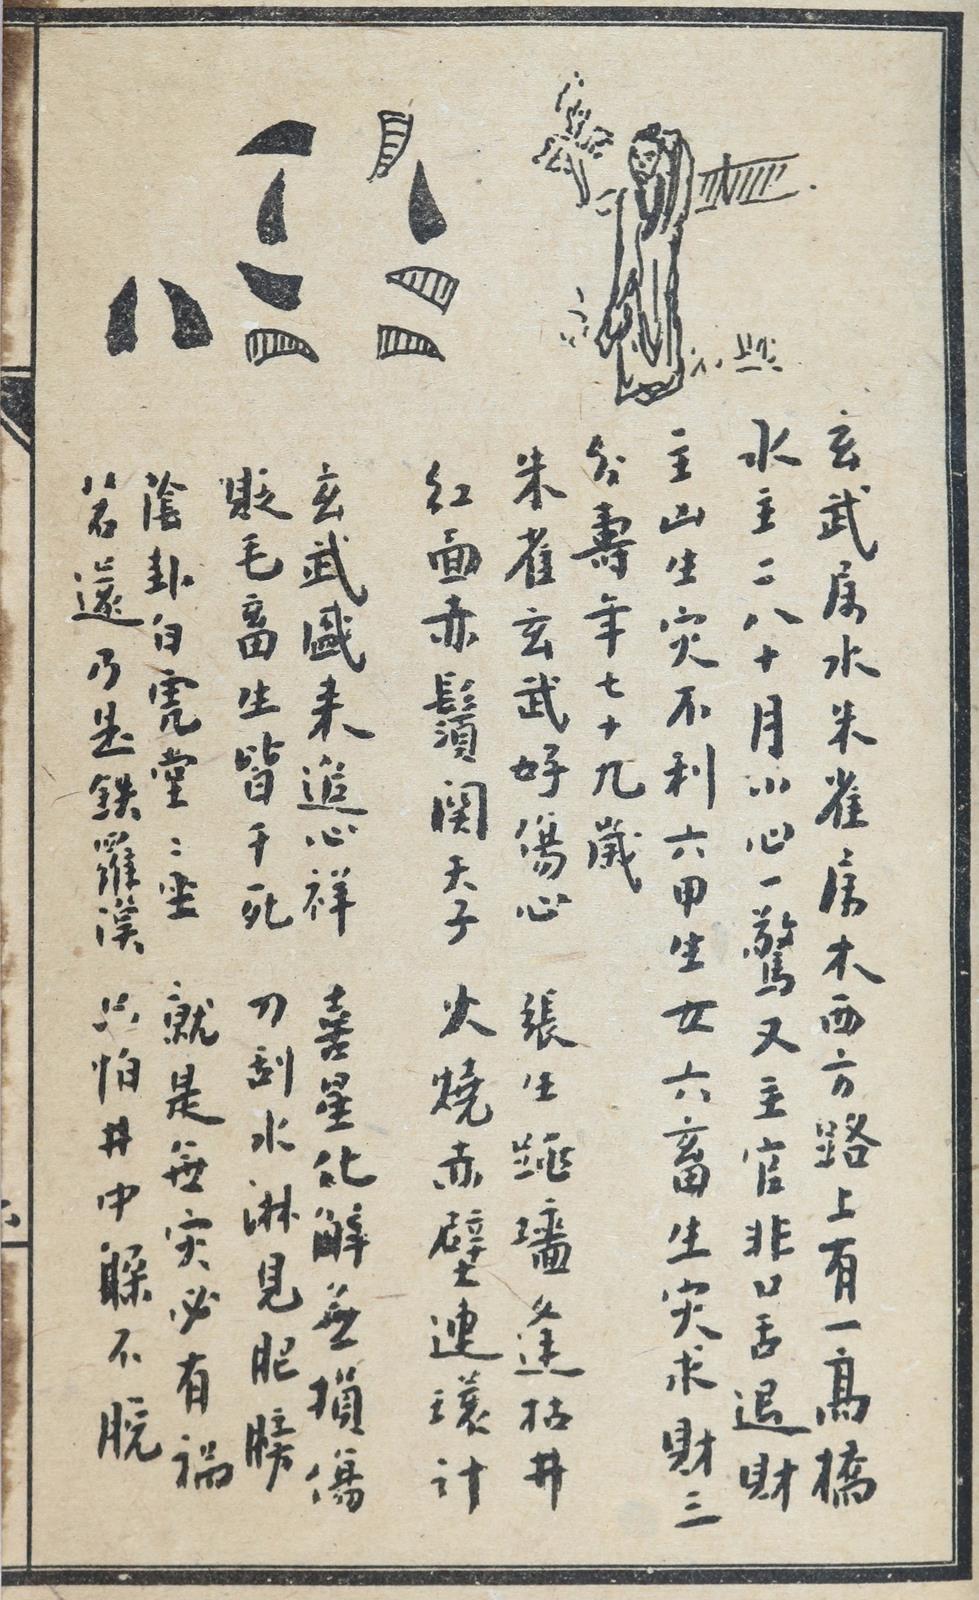 玄武属水朱雀属木西方路上有一高橋
水主二八十月小心一驚又主官非口舌退財
主山生灾不利六甲生女六畜生灾求財三
分壽年七十九歲
朱雀玄武好傷心 張生跳墻逢枯井
紅面赤鬚関夭子 火燒赤壁連環計
玄武盛来追心祥 喜星化解無損傷
眨毛畜生皆干死 刀刮水淋見肥膀
蔭卦白虎堂〻坐 就是無灾必有禍
若還乃是鉄羅漢 只怕井中躲不脱